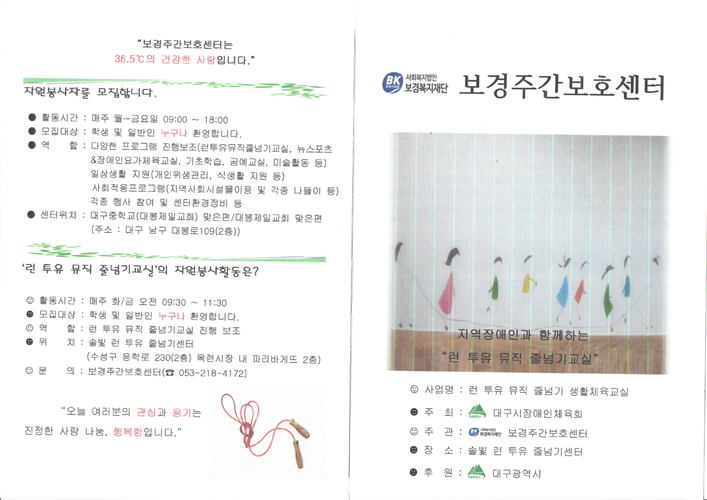 “보경주간보호센터는
36.5℃의 건강한 사랑입니다.”
자원봉사자를 모집합니다.
● 활동시간 : 매주 월~금요일 09:00 ~ 18:00
● 모집대상 : 학생 및 일반인 누구나 환영합니다.
● 역 할 : 다양한 프로그램 진행보조(런투유뮤직줄넘기교실, 뉴스포츠
&장애인요가체육교실, 기초학습, 공예교실, 미술활동 등)
일상생활 지원(개인위생관리, 식생활 지원 등)
사회적응프로그램(지역사회시설물이용 및 각종 나들이 등)
각종 행사 참여 및 센터환경정비 등
● 센터위치 : 대구중학교(대봉제일교회) 맞은편/대봉제일교회 맞은편
(주소 : 대구 남구 대봉로109(2층))
‘런 투유 뮤직 줄넘기교실’의 자원봉사활동은?
☺ 활동시간 : 매주 화/금 오전 09:30 ~ 11:30
☻ 모집대상 : 학생 및 일반인 누구나 환영합니다.
☺ 역 할 : 런 투유 뮤직 줄넘기교실 진행 보조
☻ 위 치 : 솔빛 런 투유 줄넘기센터
(수성구 용학로 230(2층) 목련시장 내 파리바게뜨 2층)
☺ 문 의 : 보경주간보호센터(☎ 053-218-4172)
“오늘 여러분의 관심과 용기는
진정한 사랑 나눔, 행복함입니다.”
BK 사회복지법인
보경복지재단
보경주간보호센터
지역장애인과 함께하는
“런 투유 뮤직 줄넘기교실”
☺ 사업명 : 런 투유 뮤직 줄넘기 생활체육교실
☻ 주 최 : 대구시장애인체육회
☺ 주 관 : BK 보경복지재단 보경주간보호센터
☻ 장 소 : 솔빛 런 투유 줄넘기센터
☻ 후 원 : 대구광역시